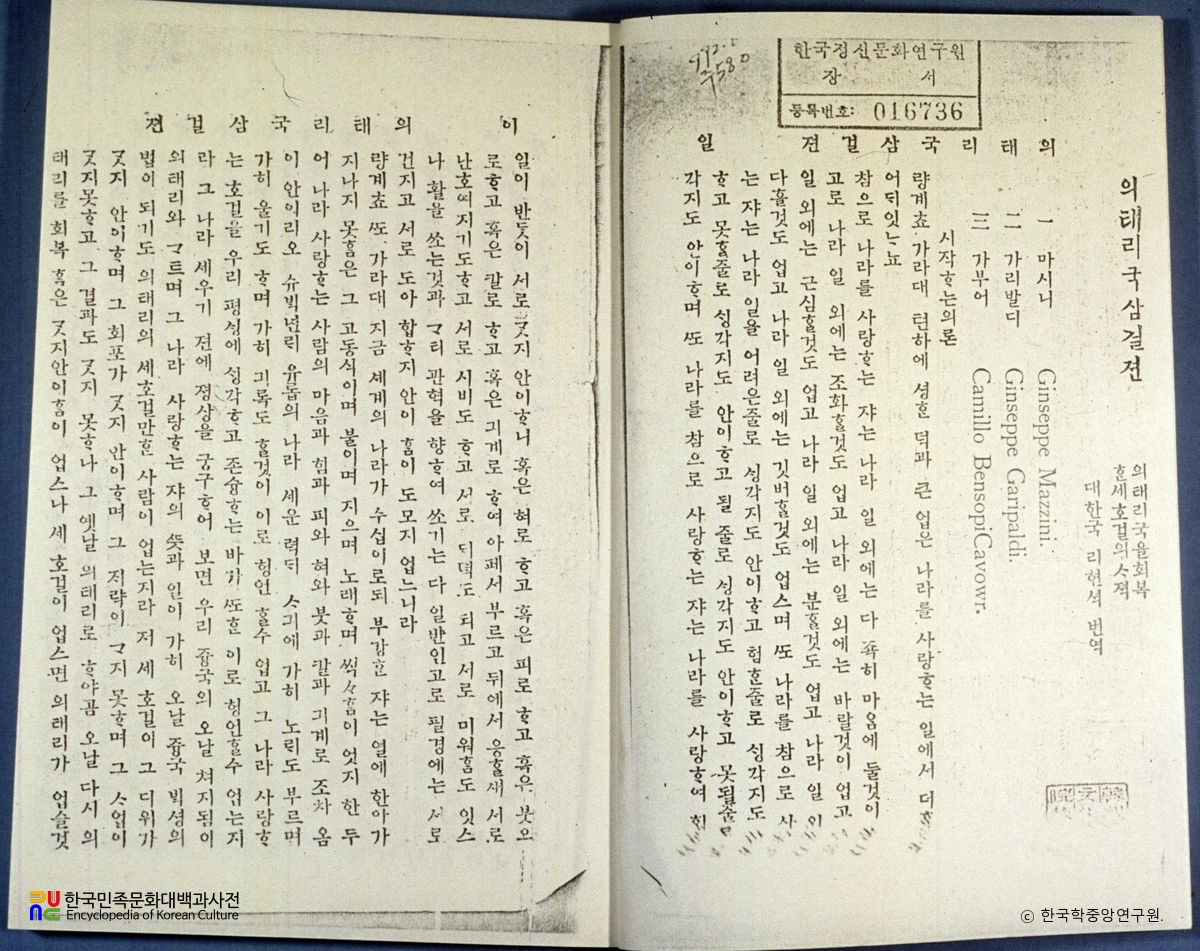 한국정신문화연구원
장 서
등록번호: 016736
의태리국삼걸젼 일
의태리국삼걸젼
의태리국을회복
ᄒᆞᆫ세호걸의ᄉᆞ젹
대한국 리현셕 번역
一 마시니 Ginseppe Mazzini.
二 가리발디 Ginseppe Garipaldi.
三 가부어 Camillo BensopiCavowr.
시작ᄒᆞ는의론
량계쵸 가라대 텬하에 셩ᄒᆞᆫ 덕과 큰 업은 나라를 사랑ᄒᆞ는 일에서 더ᄒᆞᆫ
어ᄃᆡ잇ᄂᆞ뇨
참으로 나라를 사랑ᄒᆞ는 쟈는 나라 일 외에는 다 죡히 마ᄋᆞᆷ에 둘것이
고로 나라 일 외에는 조화ᄒᆞᆯ것도 업고 나라 일 외에는 바랄것이 업고
일 외에는 근심ᄒᆞᆯ것도 업고 나라 일 외에는 분ᄒᆞᆯ것도 업고 나라 일 외
다ᄒᆞᆯ것도 업고 나라 일 외에는 깃버ᄒᆞᆯ것도 업스며 ᄯᅩ 나라를 참으로 사
는 쟈는 나라 일을 어려은줄로 ᄉᆡᆼ각지도 안이ᄒᆞ고 험ᄒᆞᆫ줄로 ᄉᆡᆼ각지도
ᄒᆞ고 못ᄒᆞᆯ줄로 ᄉᆡᆼ각지도 안이ᄒᆞ고 될 줄로 ᄉᆡᆼ각지도 안이ᄒᆞ고 못될줄
각지도 안이ᄒᆞ며 ᄯᅩ 나라를 참으로 사랑ᄒᆞ는 쟈는 나라를 사랑ᄒᆞ여
이 의태리국삼걸젼
일이 반듯이 서로 ᄀᆞᆺ지 안이ᄒᆞ니 혹은 혀로 ᄒᆞ고 혹은 피로 ᄒᆞ고 혹은 붓으
로ᄒᆞ고 혹은 칼로 ᄒᆞ고 혹은 긔계로 ᄒᆞ여 아페서 부르고 뒤에서 응ᄒᆞᆯ새 서로
난호여지기도ᄒᆞ고 서로 시비도 ᄒᆞ고 서로 되고 서로 미워ᄒᆞᆷ도 잇스
나 활을 쏘는것과 ᄀᆞᆺ티 관혁을 향ᄒᆞ여 쏘기는 다 일반인고로 필경에는 서로
건지고 서로 도아 합ᄒᆞ지 안이 ᄒᆞᆷ이 도모지 업느니라
량계쵸 ᄯᅩ 가라대 지금 셰계의 나라가 수십이로되 부강ᄒᆞᆫ 쟈는 열에 한아가
지나지 못ᄒᆞᆷ은 그 고동식이며 불이며 지으며 노래ᄒᆞ며 ᄒᆞᆷ이 엇지 한 두
어 나라 사랑ᄒᆞ는 사람의 마음과 힘과 피와 혀와 붓과 칼과 긔계로 조차 옴
이 안이리오 슈ᄇᆡᆨ년ᄅᆡ 유롭의 나라 세운 력ᄃᆡ ᄉᆞ긔에 가히 노ᄅᆡ도 부르며
가히 울기도 ᄒᆞ며 가히 긔록도 ᄒᆞᆯ것이 이로 형언 ᄒᆞᆯ수 업고 그 나라 사랑ᄒᆞ
는 호걸을 우리 평ᄉᆡᆼ에 ᄉᆡᆼ각ᄒᆞ고 존슝ᄒᆞ는 바가 ᄯᅩᄒᆞᆫ 이로 형언ᄒᆞᆯ수 업는지
라 그 나라 세우기 젼에 졍상을 궁구ᄒᆞ어 보면 우리 즁국의 오날 쳐지됨이
의태리와 ᄀᆞᆺ트며 그 나라 사랑ᄒᆞ는 쟈의 ᄯᅳᆺ과 일이 가히 오날 즁국 ᄇᆡᆨ셩의
법이 되기도 의태리의 세호걸만ᄒᆞᆫ 사람이 업는지라 저 세 호걸이 그 디위가
ᄀᆞᆺ지 안이ᄒᆞ며 그 회포가 ᄀᆞᆺ지 안이ᄒᆞ며 그 지략이 ᄀᆞᆺ지 못ᄒᆞ며 그 ᄉᆞ업이
ᄀᆞᆺ지못ᄒᆞ고 그 결과도 ᄀᆞᆺ지 못ᄒᆞ나 그 옛날 의태리로 ᄒᆞ야곰 오날 다시 의
태리를 회복 ᄒᆞᆷ은 ᄀᆞᆺ지안이ᄒᆞᆷ이 업스나 세 호걸이 업스면 의태리가 업슬것
한국민족문화대백과사전
Encyclopedia of Korean Culture
© 한국학중앙연구원.